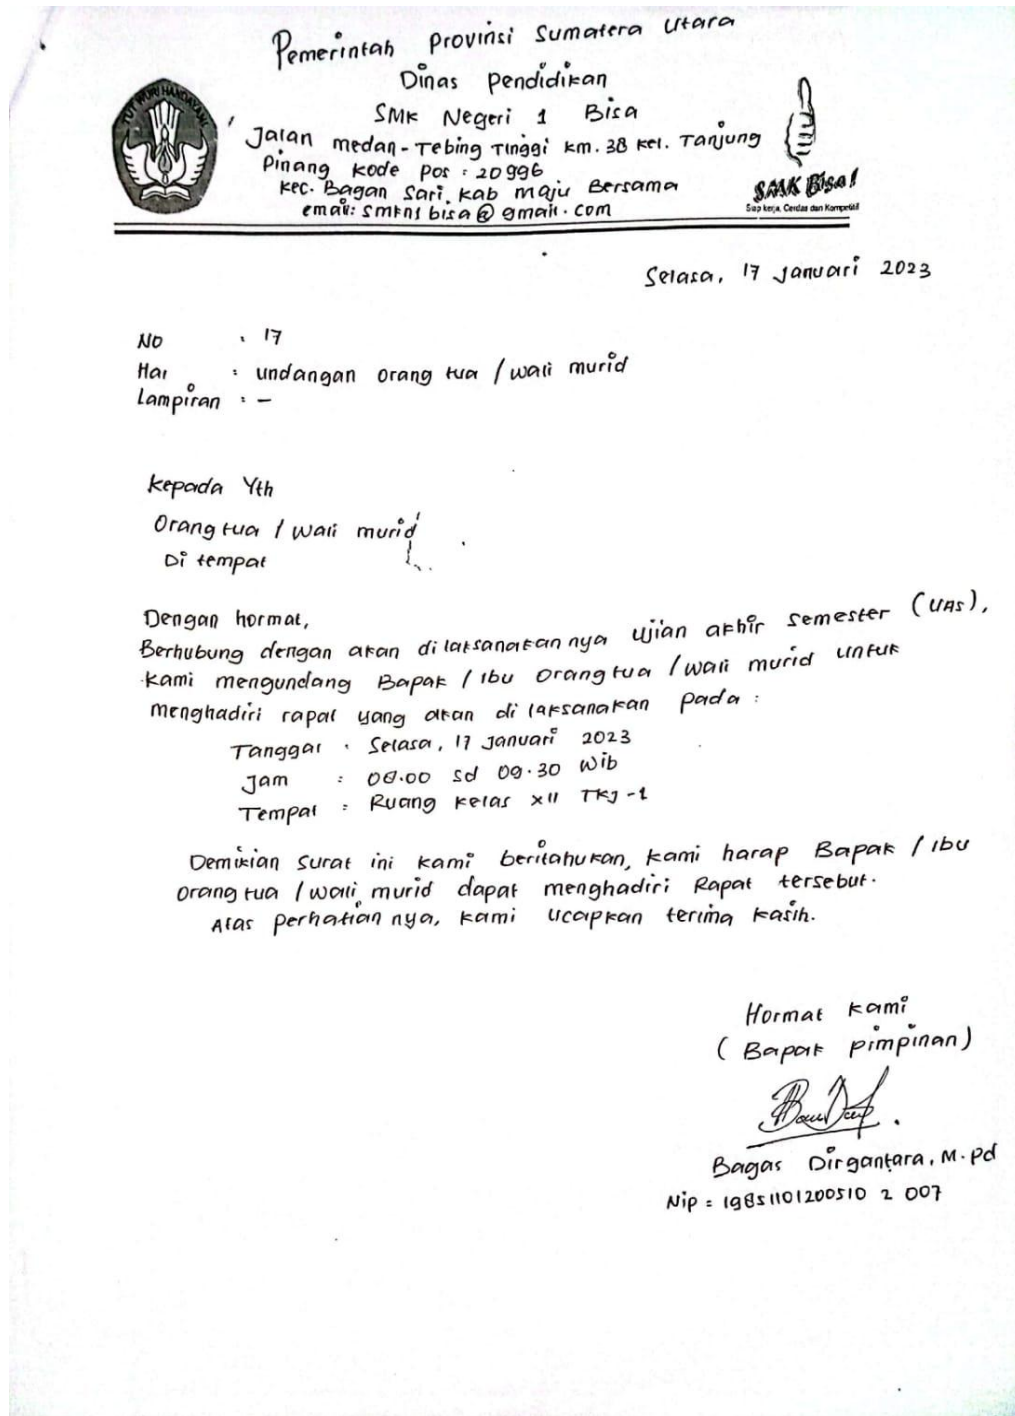 Pemerintah Provinsi Sumatera Utara
Dinas Pendidikan
SMK Negeri 1 Bisa
Jalan medan - Tebing Tinggi km. 38 Kel. Tanjung
Pinang Kode Pos : 20996
Kec. Bagan Sari, Kab Maju Bersama
email: smkn1 bisa@gmail.com
TUT WURI HANDAYANI
SMK Bisa!
Siap kerja, Cerdas dan Kompetitif
Selasa, 17 Januari 2023
No : 17
Hal : undangan orang tua / wali murid
Lampiran : -
Kepada Yth
Orang tua / Wali murid
Di tempat
Dengan hormat,
Berhubung dengan akan di laksanakan nya ujian akhir semester (UAS),
kami mengundang Bapak / Ibu Orang tua / wali murid untuk
menghadiri rapat yang akan di laksanakan pada :
Tanggal : Selasa, 17 Januari 2023
Jam : 08.00 sd 09.30 Wib
Tempat : Ruang Kelas XII TKJ-1
Demikian surat ini kami beritahukan, kami harap Bapak / Ibu
Orang tua / wali murid dapat menghadiri Rapat tersebut.
Atas perhatian nya, kami ucapkan terima kasih.
Hormat Kami
( Bapak pimpinan )
Bagas Dirgantara, M.pd
Nip = 19851101200510 2 007